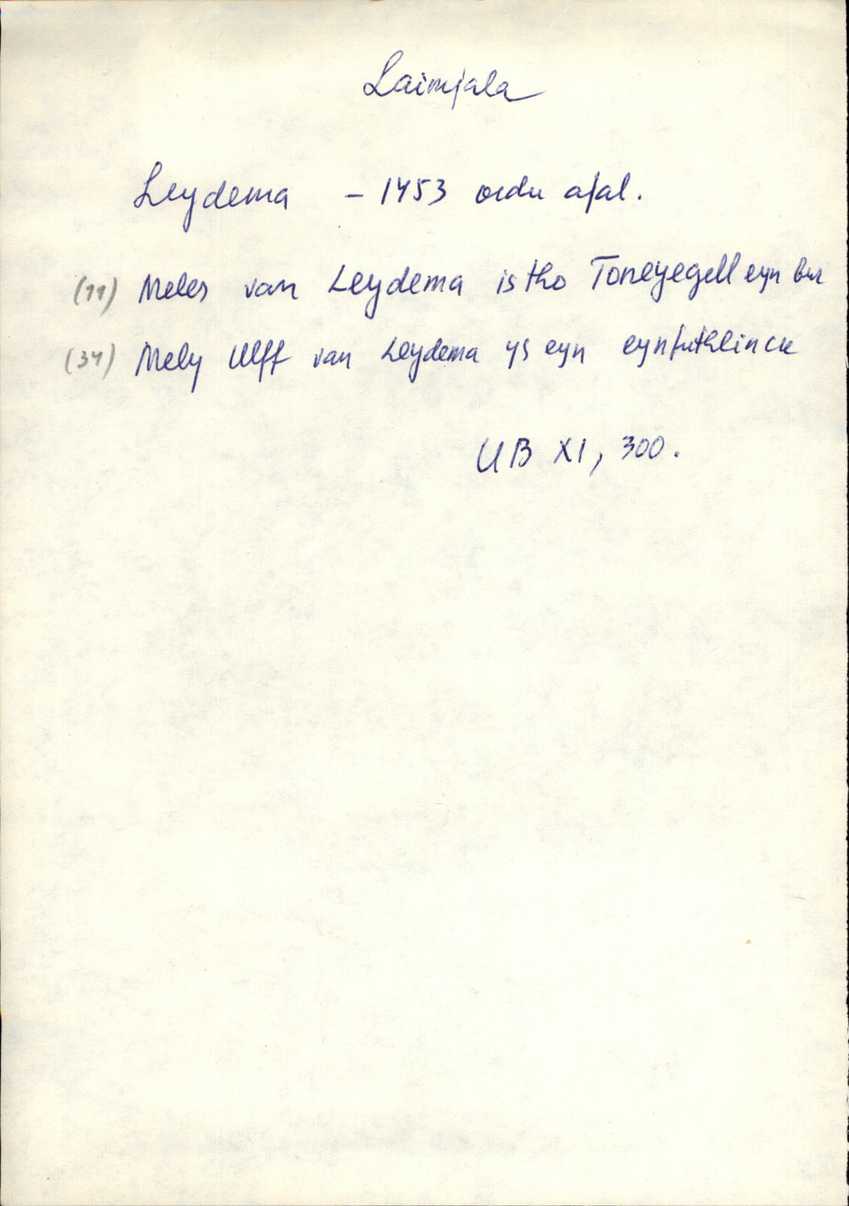 Laimjala
Leydema - 1453 ordu ajal.
(11) Meles van Leydema is tho Toneyegell eyn bur
(34) Mely Ulff van Leydema ys eyn eynfuthlinck
UB XI, 300.